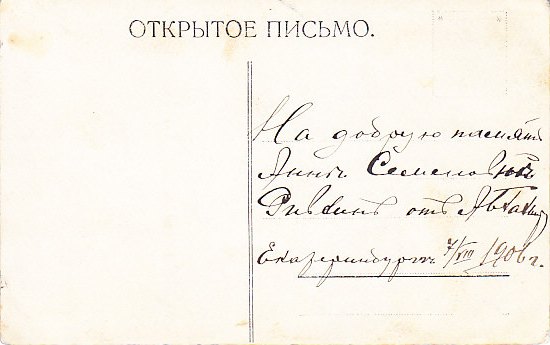 ОТКРЫТОЕ ПИСЬМО.
На добрую память
Аннѣ Семеновнѣ
Ривкинъ отъ
Екатеринбургъ 7/VIII 1906 г.